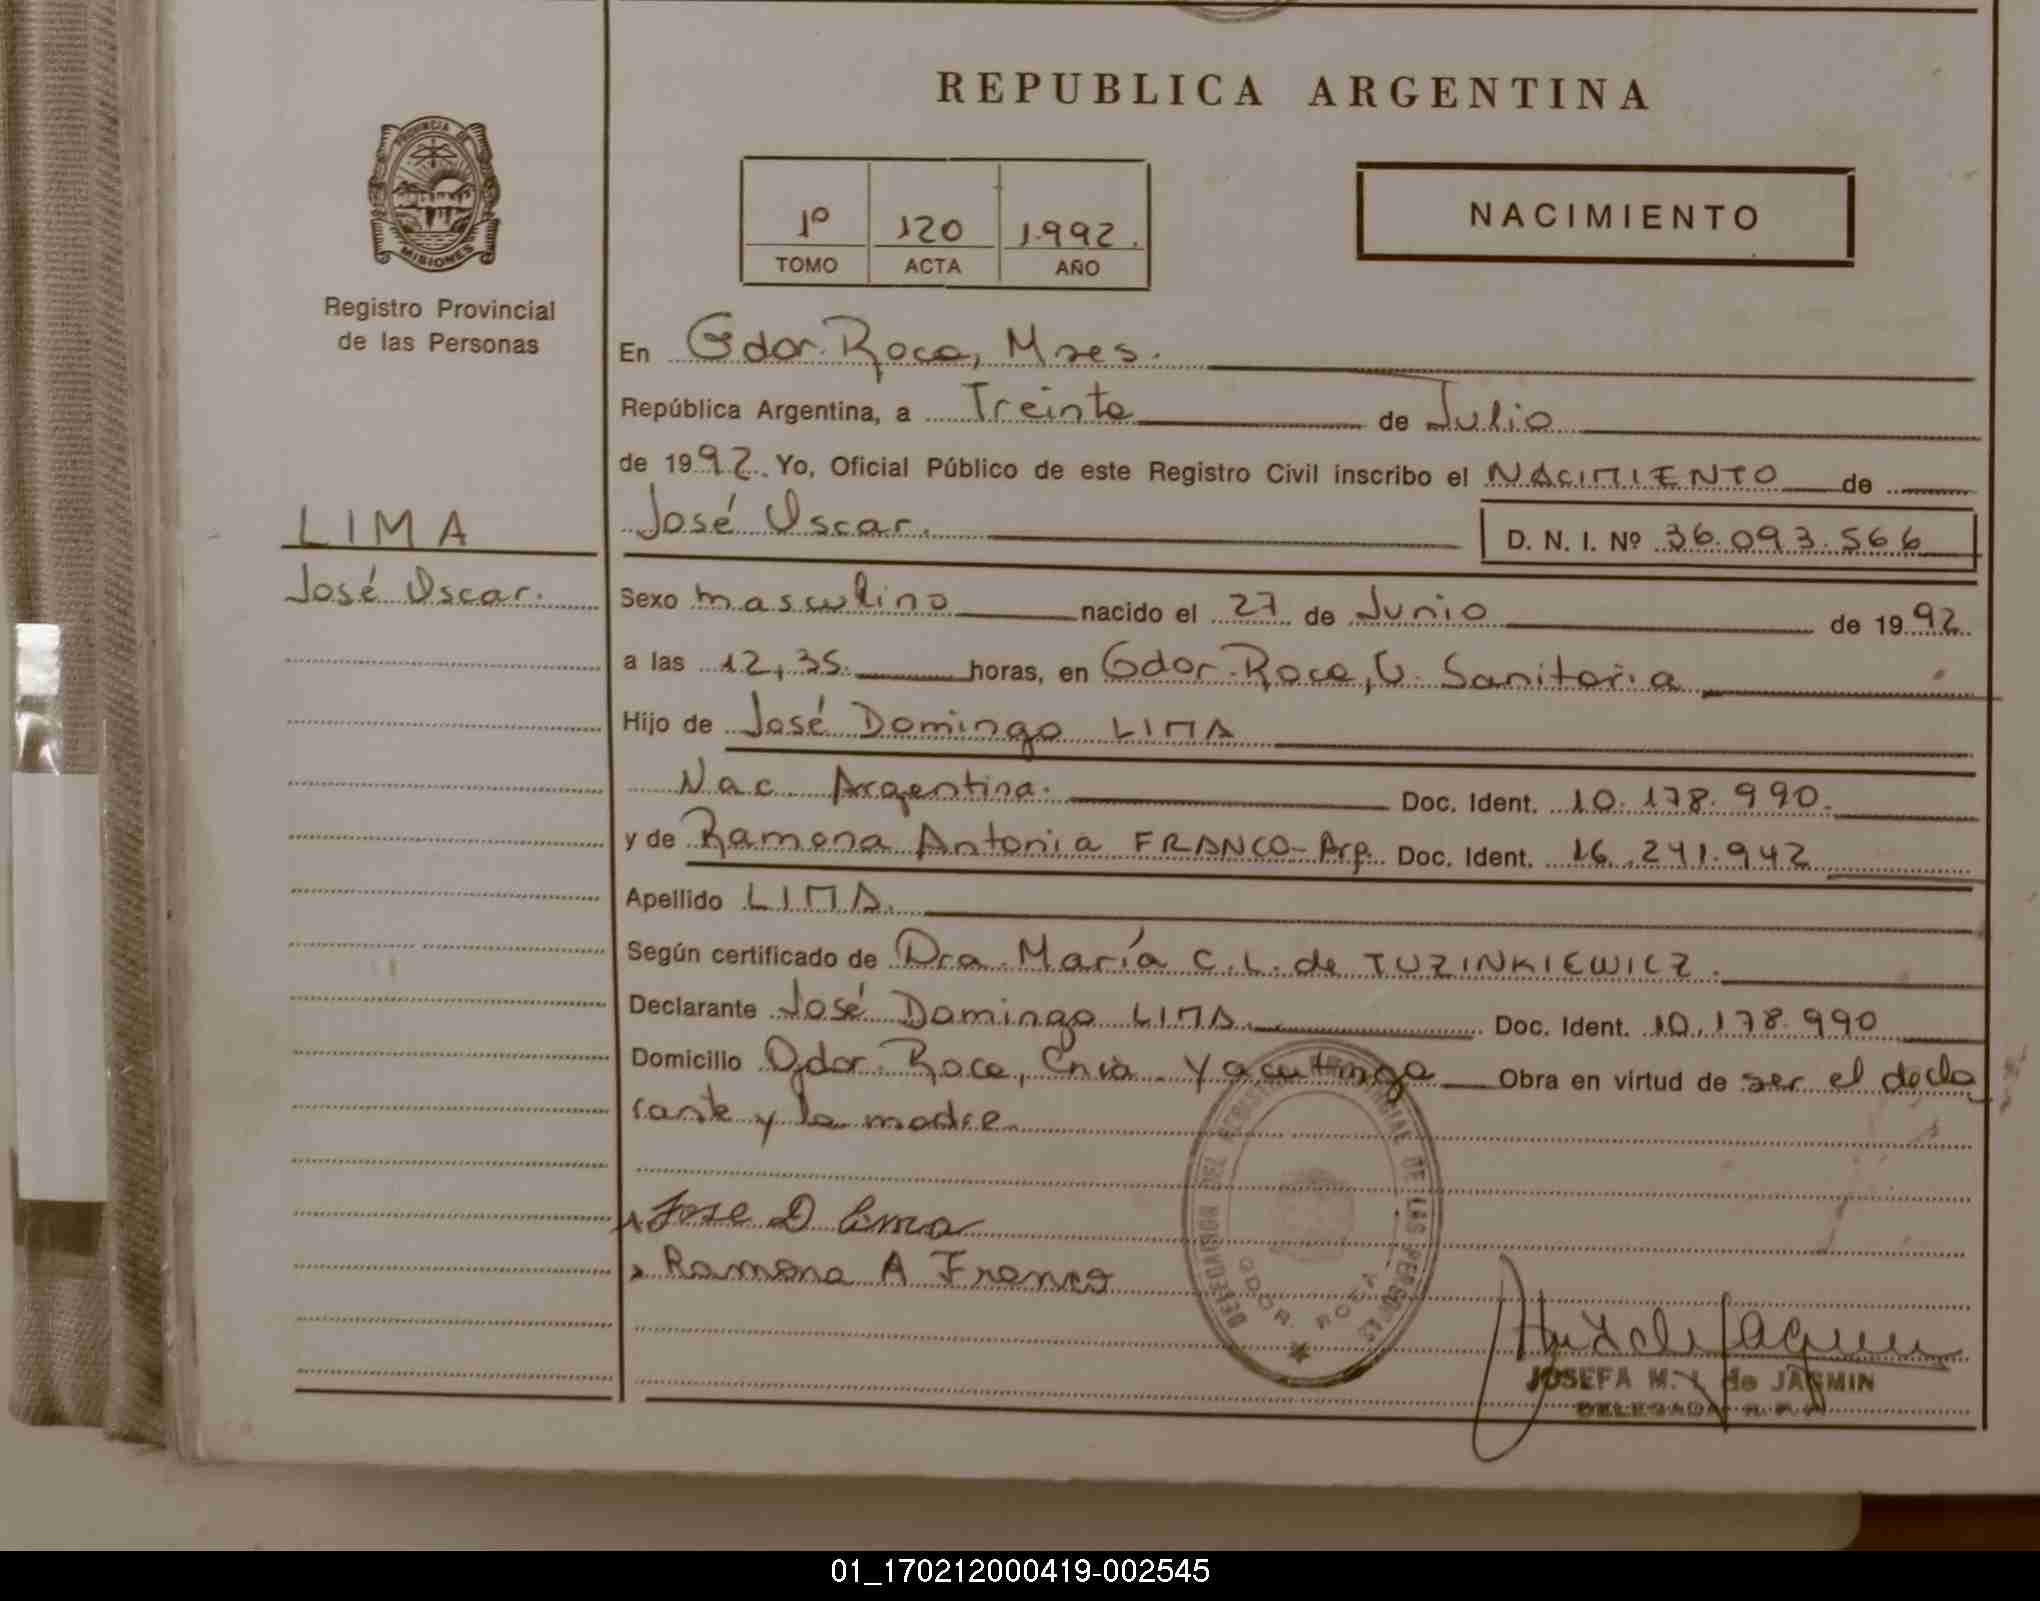 REPUBLICA ARGENTINA
PROVINCIA DE MISIONES
Registro Provincial
de las Personas
1º 120 1.992.
TOMO ACTA AÑO
NACIMIENTO
En Gdor. Roca, Mnes.
República Argentina, a Treinta de Julio
de 1992. Yo, Oficial Público de este Registro Civil inscribo el NACIMIENTO de
José Oscar. D. N. I. Nº 36.093.566
LIMA
José Oscar.
Sexo masculino nacido el 27 de Junio de 1992.
a las 12,35. horas, en Gdor. Roca, U. Sanitaria
Hijo de José Domingo LIMA
Nac. Argentina. Doc. Ident. 10.178.990.
y de Ramona Antonia FRANCO- Arg. Doc. Ident. 16.241.942
Apellido LIMA.
Según certificado de Dra. María C.L. de TUZINKIEWICZ.
Declarante José Domingo LIMA. Doc. Ident. 10.178.990
Domicilio Gdor. Roca, Cnia. Yacutinga Obra en virtud de ser el decla
rante y la madre.
Jose D Lima
Ramona A Franco
DELEGACION DEL REGISTRO PROVINCIAL DE LAS PERSONAS
GDOR. ROCA
JOSEFA M. de JASMIN
DELEGADA R. P. P.
01_170212000419-002545